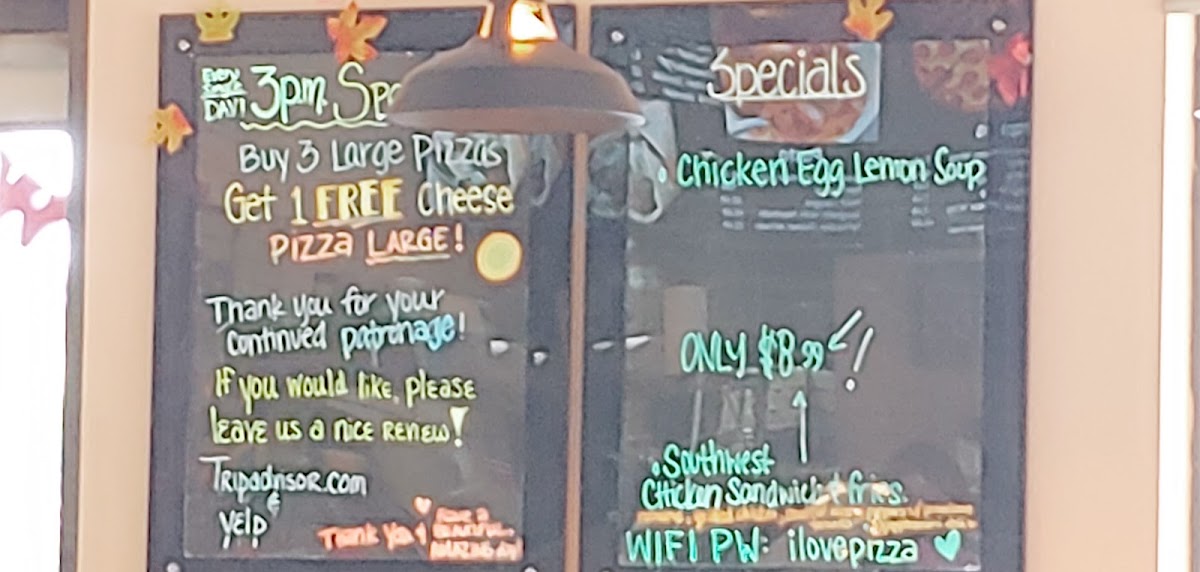 EVERY
Single
DAY!
3pm Spe
Buy 3 Large Pizzas
Get 1 FREE Cheese
Pizza LARGE!
Thank you for your
continued patronage!
If you would like, please
leave us a nice review!
Tripadvisor.com
&
Yelp
Thank you & Have a
Beautiful...
Amazing day!
Specials
• Chicken Egg Lemon Soup
ONLY $8.99!
• Southwest
Chicken Sandwich & fries.
WIFI PW: ilovepizza